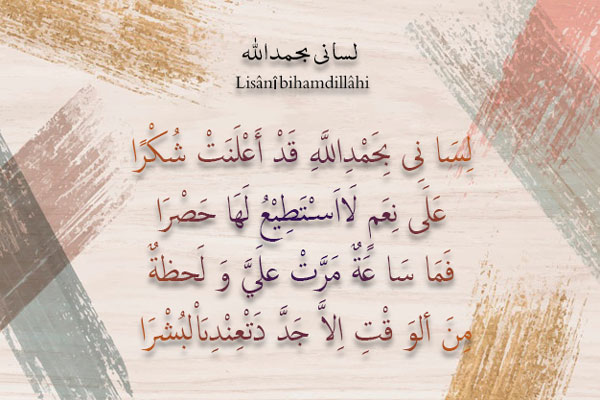 لسانى بحمدالله
Lisânî bihamdillâhi
لِسَا نِي بِحَمْدِاللَّهِ قَدْ أَعْلَنَتْ شُكْرًا
عَلَى نِعَمٍ لَااَسْتَطِيْعُ لَهَا حَصْرَا
فَمَا سَا عَةٌ مَرَّتْ علَيَّ وَ لَحظةٌ
مِنَ ألوَ قْتِ اِلاَّ جَدَّ دَتْعِنْدِىَاْلبُشْرَا